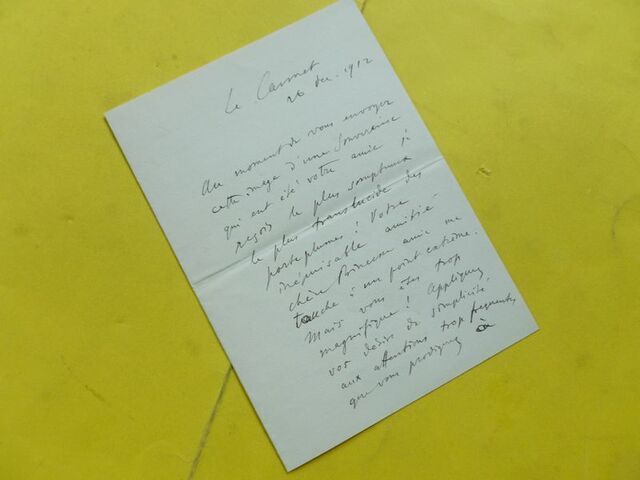 Le Cannet
26 dec. 1912
Au moment de vous envoyer
cette image d'une Souveraine
qui eut été votre amie je
reçois le plus somptueux
le plus translucide des
porte plumes ! Votre
inépuisable amitié
chère Princesse amie me
touche à un point extrême.
Mais vous êtes trop
magnifique ! Appliquez
vos désirs de simplicité,
aux attentions trop fréquentes,
que vous prodiguez à